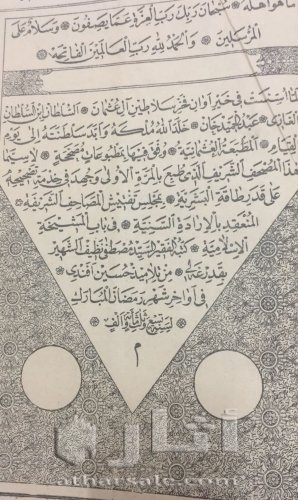 ماهو اهله ۞ سبحان ربك رب العزة عما يصفون ۞ وسلام على
المرسلين ۞ والحمد لله رب العالمين الفاتحة ۞
لما اسست في خير اوان فخر سلاطين آل عثمان ۞ السلطان ابن السلطان
الغازى عبد الحميد خان ۞ خلد الله ملكه وابد سلطنته الى يوم
القيام ۞ المطبعة العثمانية ۞ ووفق فيها بطبوعات مصححة ۞ لاسيما
هذا المصحف الشريف الذى طبع بالمرة الاولى وجهد في خدمة تصحيحه
على قدر طاقة البشرية ۞ بمجلس تفتيش المصاحف الشريفة ۞
المنعقد بالارادة السنية ۞ فى باب المشيخة
الاسلامية ۞ كتبه الفقير السيد مصطفى نظيف الشهير
بقدرغه لى ۞ من تلاميذ حسين افندى ۞
فى اواخر شهر رمضان المبارك
لسنة تسع وثلثمائة والف ۞
م
آثار
atharsale.com